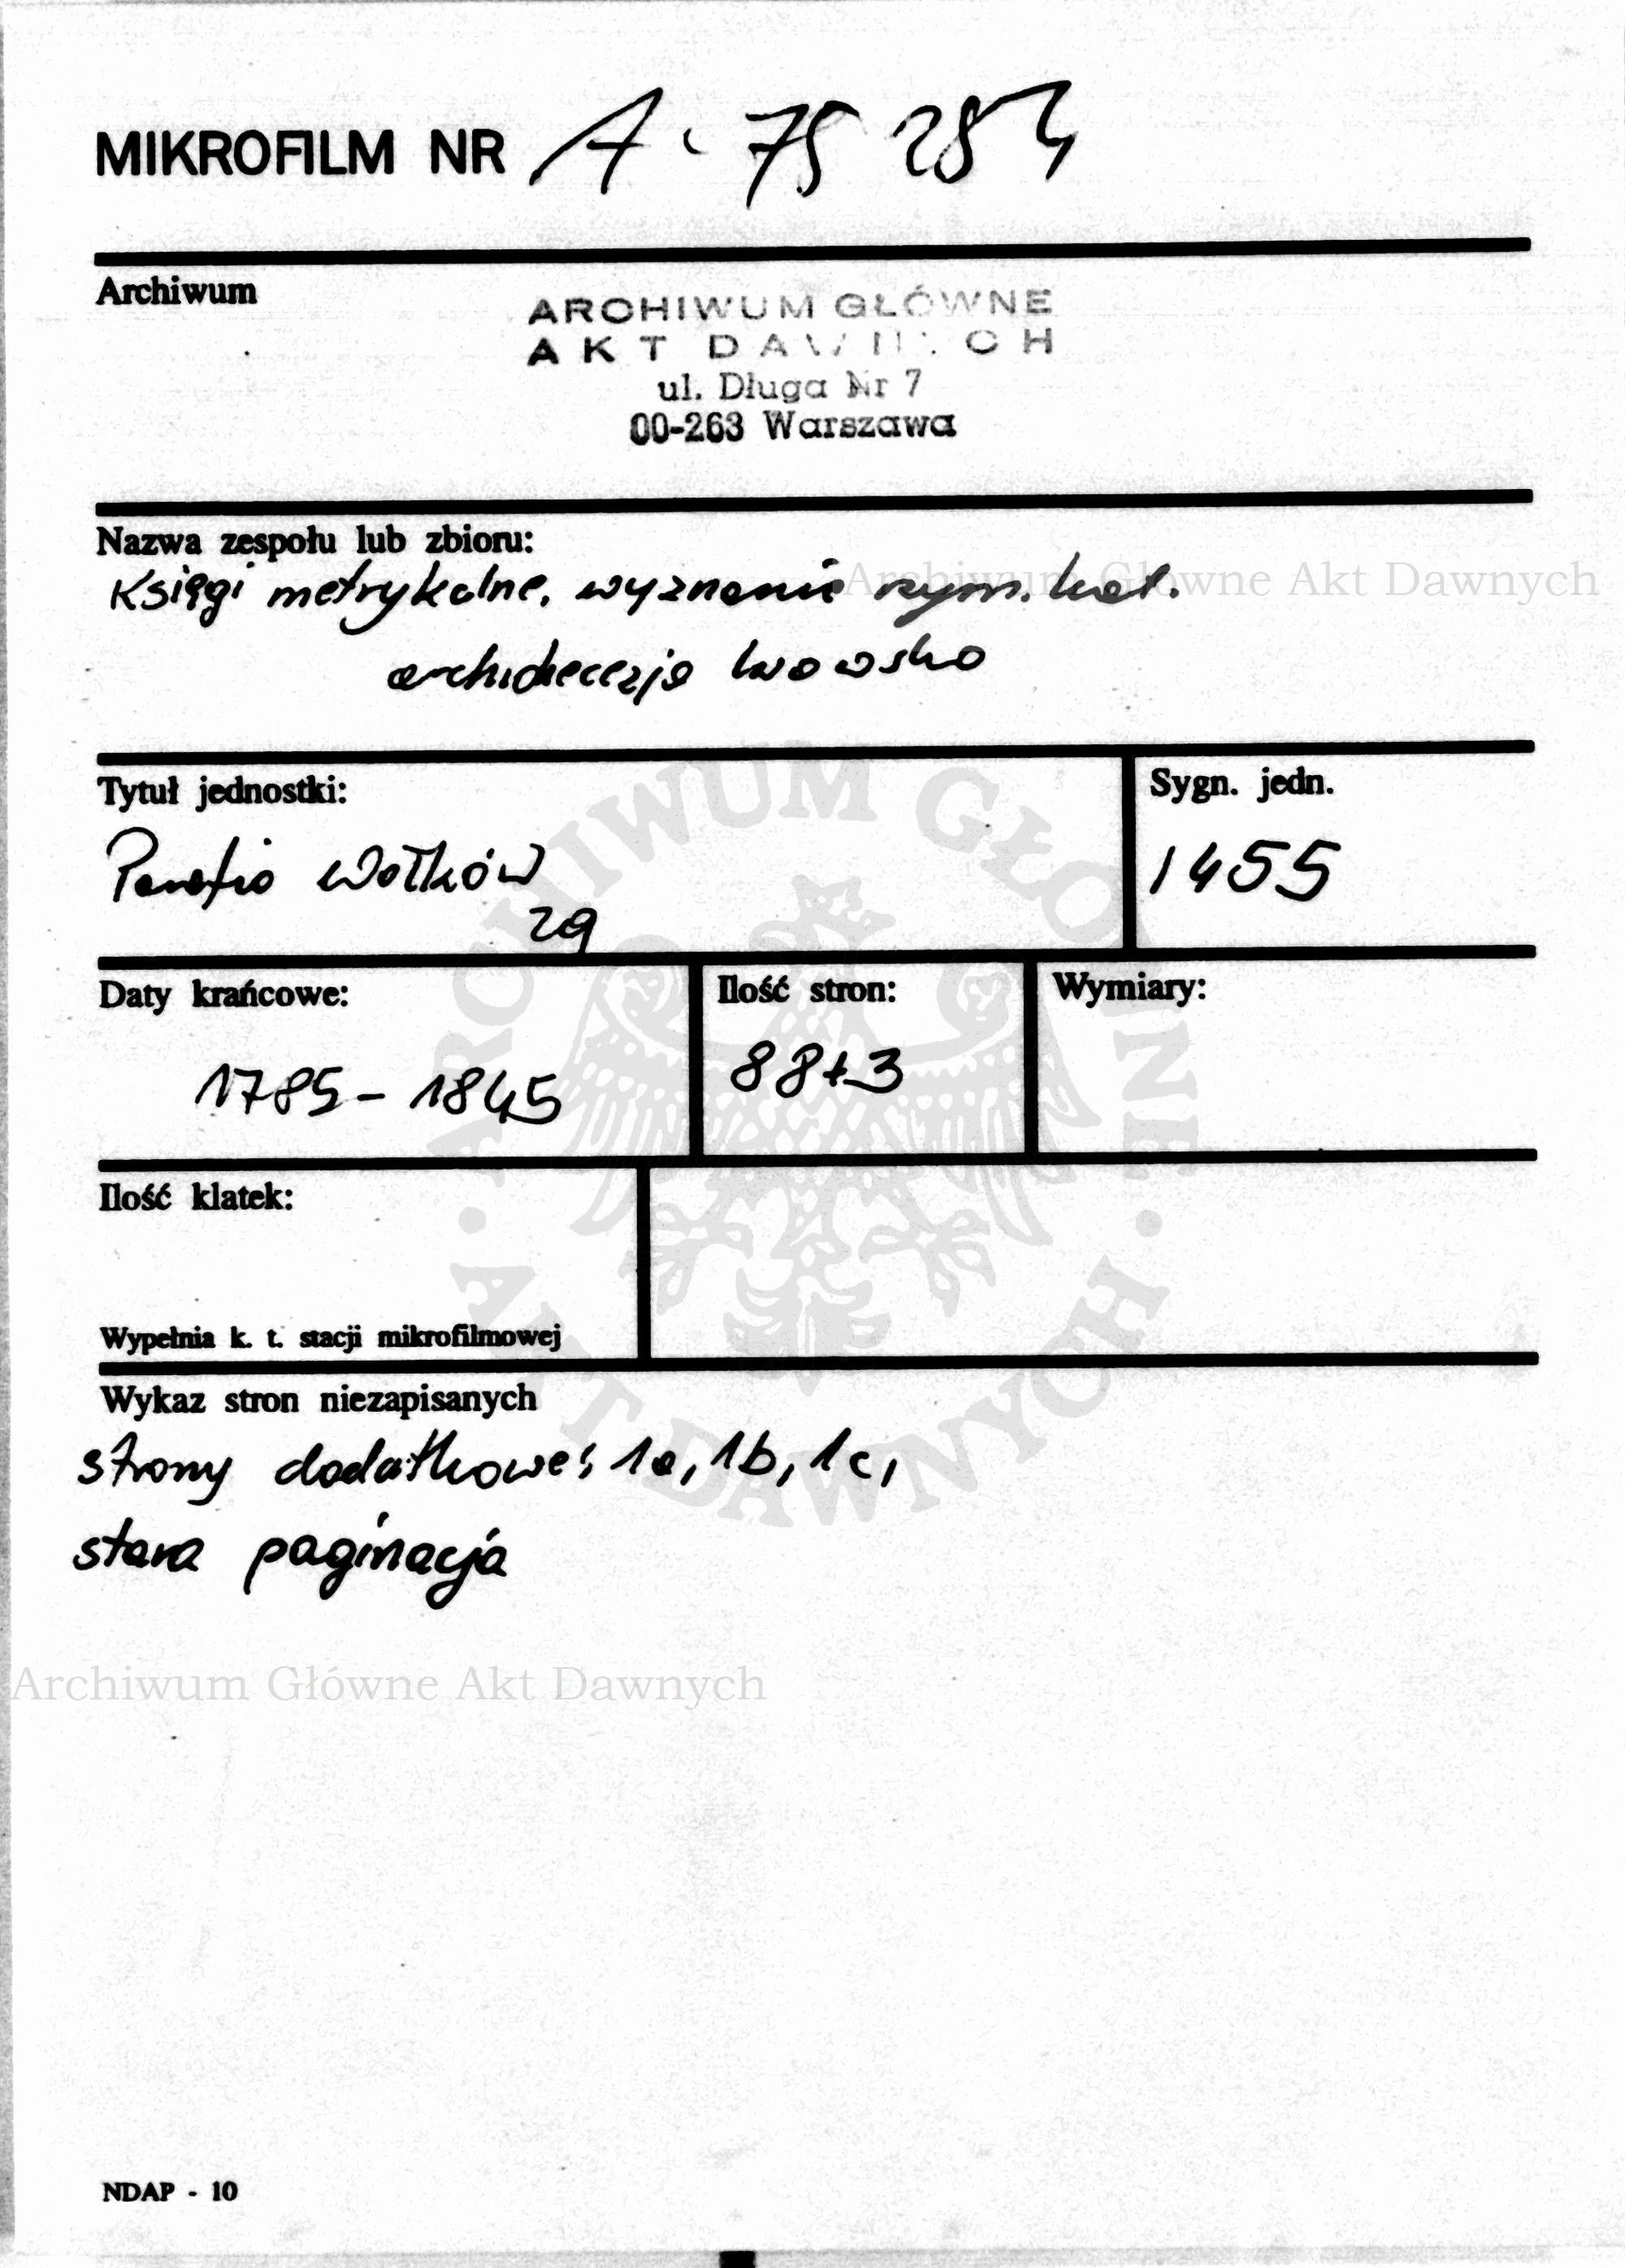 MIKROFILM NR A-75 284
Archiwum
ARCHIWUM GŁÓWNE
AKT DAWNYCH
ul. Długa Nr 7
00-263 Warszawa
Nazwa zespołu lub zbioru:
Księgi metrykalne, wyznanie rzym. kat.
Archiwum Główne Akt Dawnych
archidiecezja lwowska
Tytuł jednostki:
Parafia Wołków
Sygn. jedn.
1455
zg
Daty krańcowe:
1785 - 1845
Ilość stron:
88+3
Wymiary:
Ilość klatek:
Wypełnia k. t. stacji mikrofilmowej
Wykaz stron niezapisanych
strony dodatkowe: 1a, 1b, 1c,
stara paginacja
Archiwum Główne Akt Dawnych
ARCHIWUM GŁÓWNE · AKT DAWNYCH ·
NDAP - 10